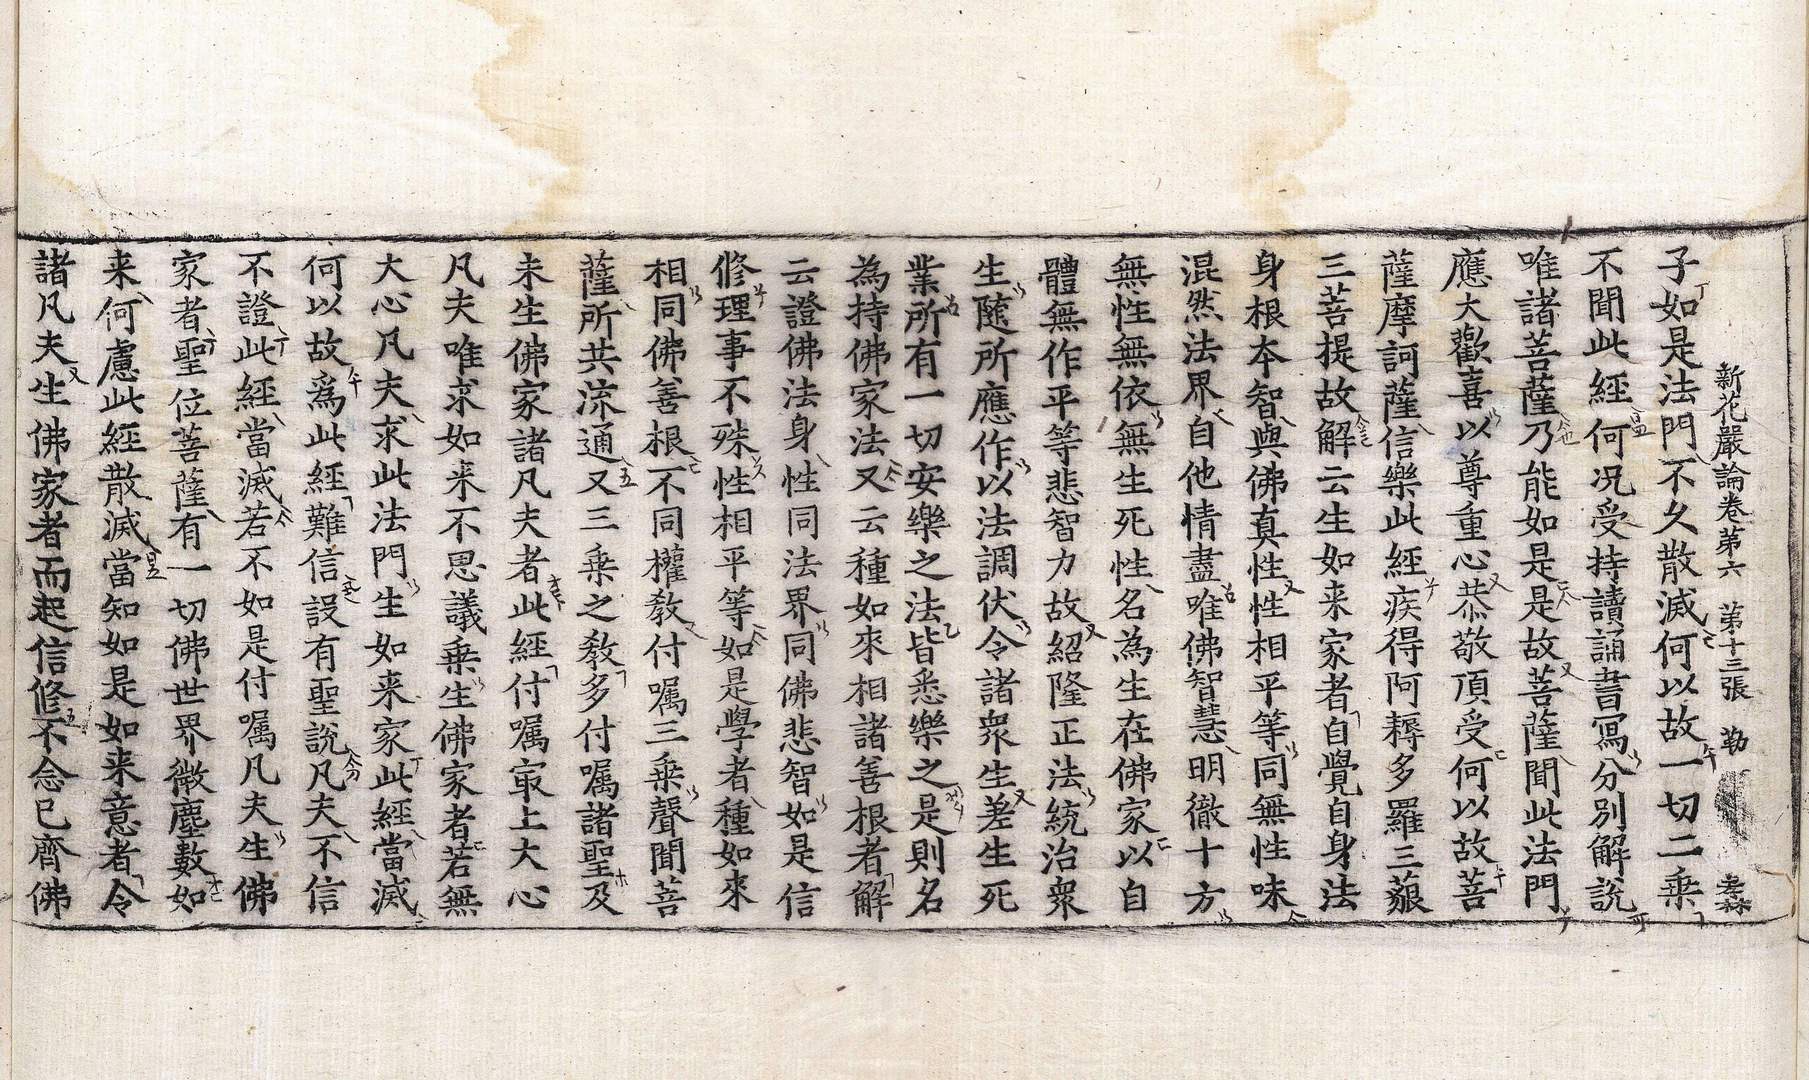 新花嚴論卷第六　第十三張　勒
子如是法門不久散滅何以故一切二乘
不聞此經何況受持讀誦書寫分別解說
唯諸菩薩乃能如是是故菩薩聞此法門
應大歡喜以尊重心恭敬頂受何以故菩
薩摩訶薩信樂此經疾得阿耨多羅三藐
三菩提故解云生如来家者自覺自身法
身根本智與佛真性性相平等同無性味
混然法界自他情盡唯佛智慧明徹十方
無性無依無生死性名為生在佛家以自
體無作平等悲智力故紹隆正法統治衆
生隨所應作以法調伏令諸衆生差生死
業所有一切安樂之法皆悉樂之是則名
為持佛家法又云種如來相諸善根者解
云證佛法身性同法界同佛悲智如是信
修理事不殊性相平等如是學者種如來
相同佛善根不同權教付囑三乘聲聞菩
薩所共流通又三乘之教多付囑諸聖及
未生佛家諸凡夫者此經付囑㝡上大心
凡夫唯求如来不思議乗生佛家者若無
大心凡夫求此法門生如来家此經當滅
何以故為此經難信設有聖說凡夫不信
不證此經當滅若不如是付囑凡夫生佛
家者聖位菩薩有一切佛世界微塵數如
来何慮此經散滅當知如是如来意者令
諸凡夫生佛家者而起信修不念已齊佛